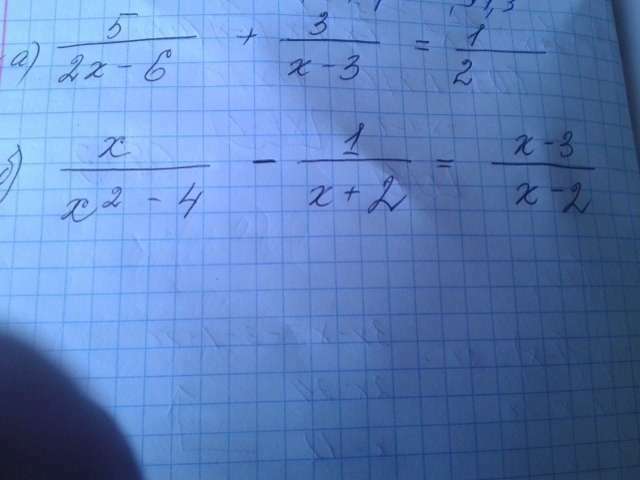 а) 5/(2x-6) + 3/(x-3) = 1/2
б) x/(x²-4) - 1/(x+2) = (x-3)/(x-2)